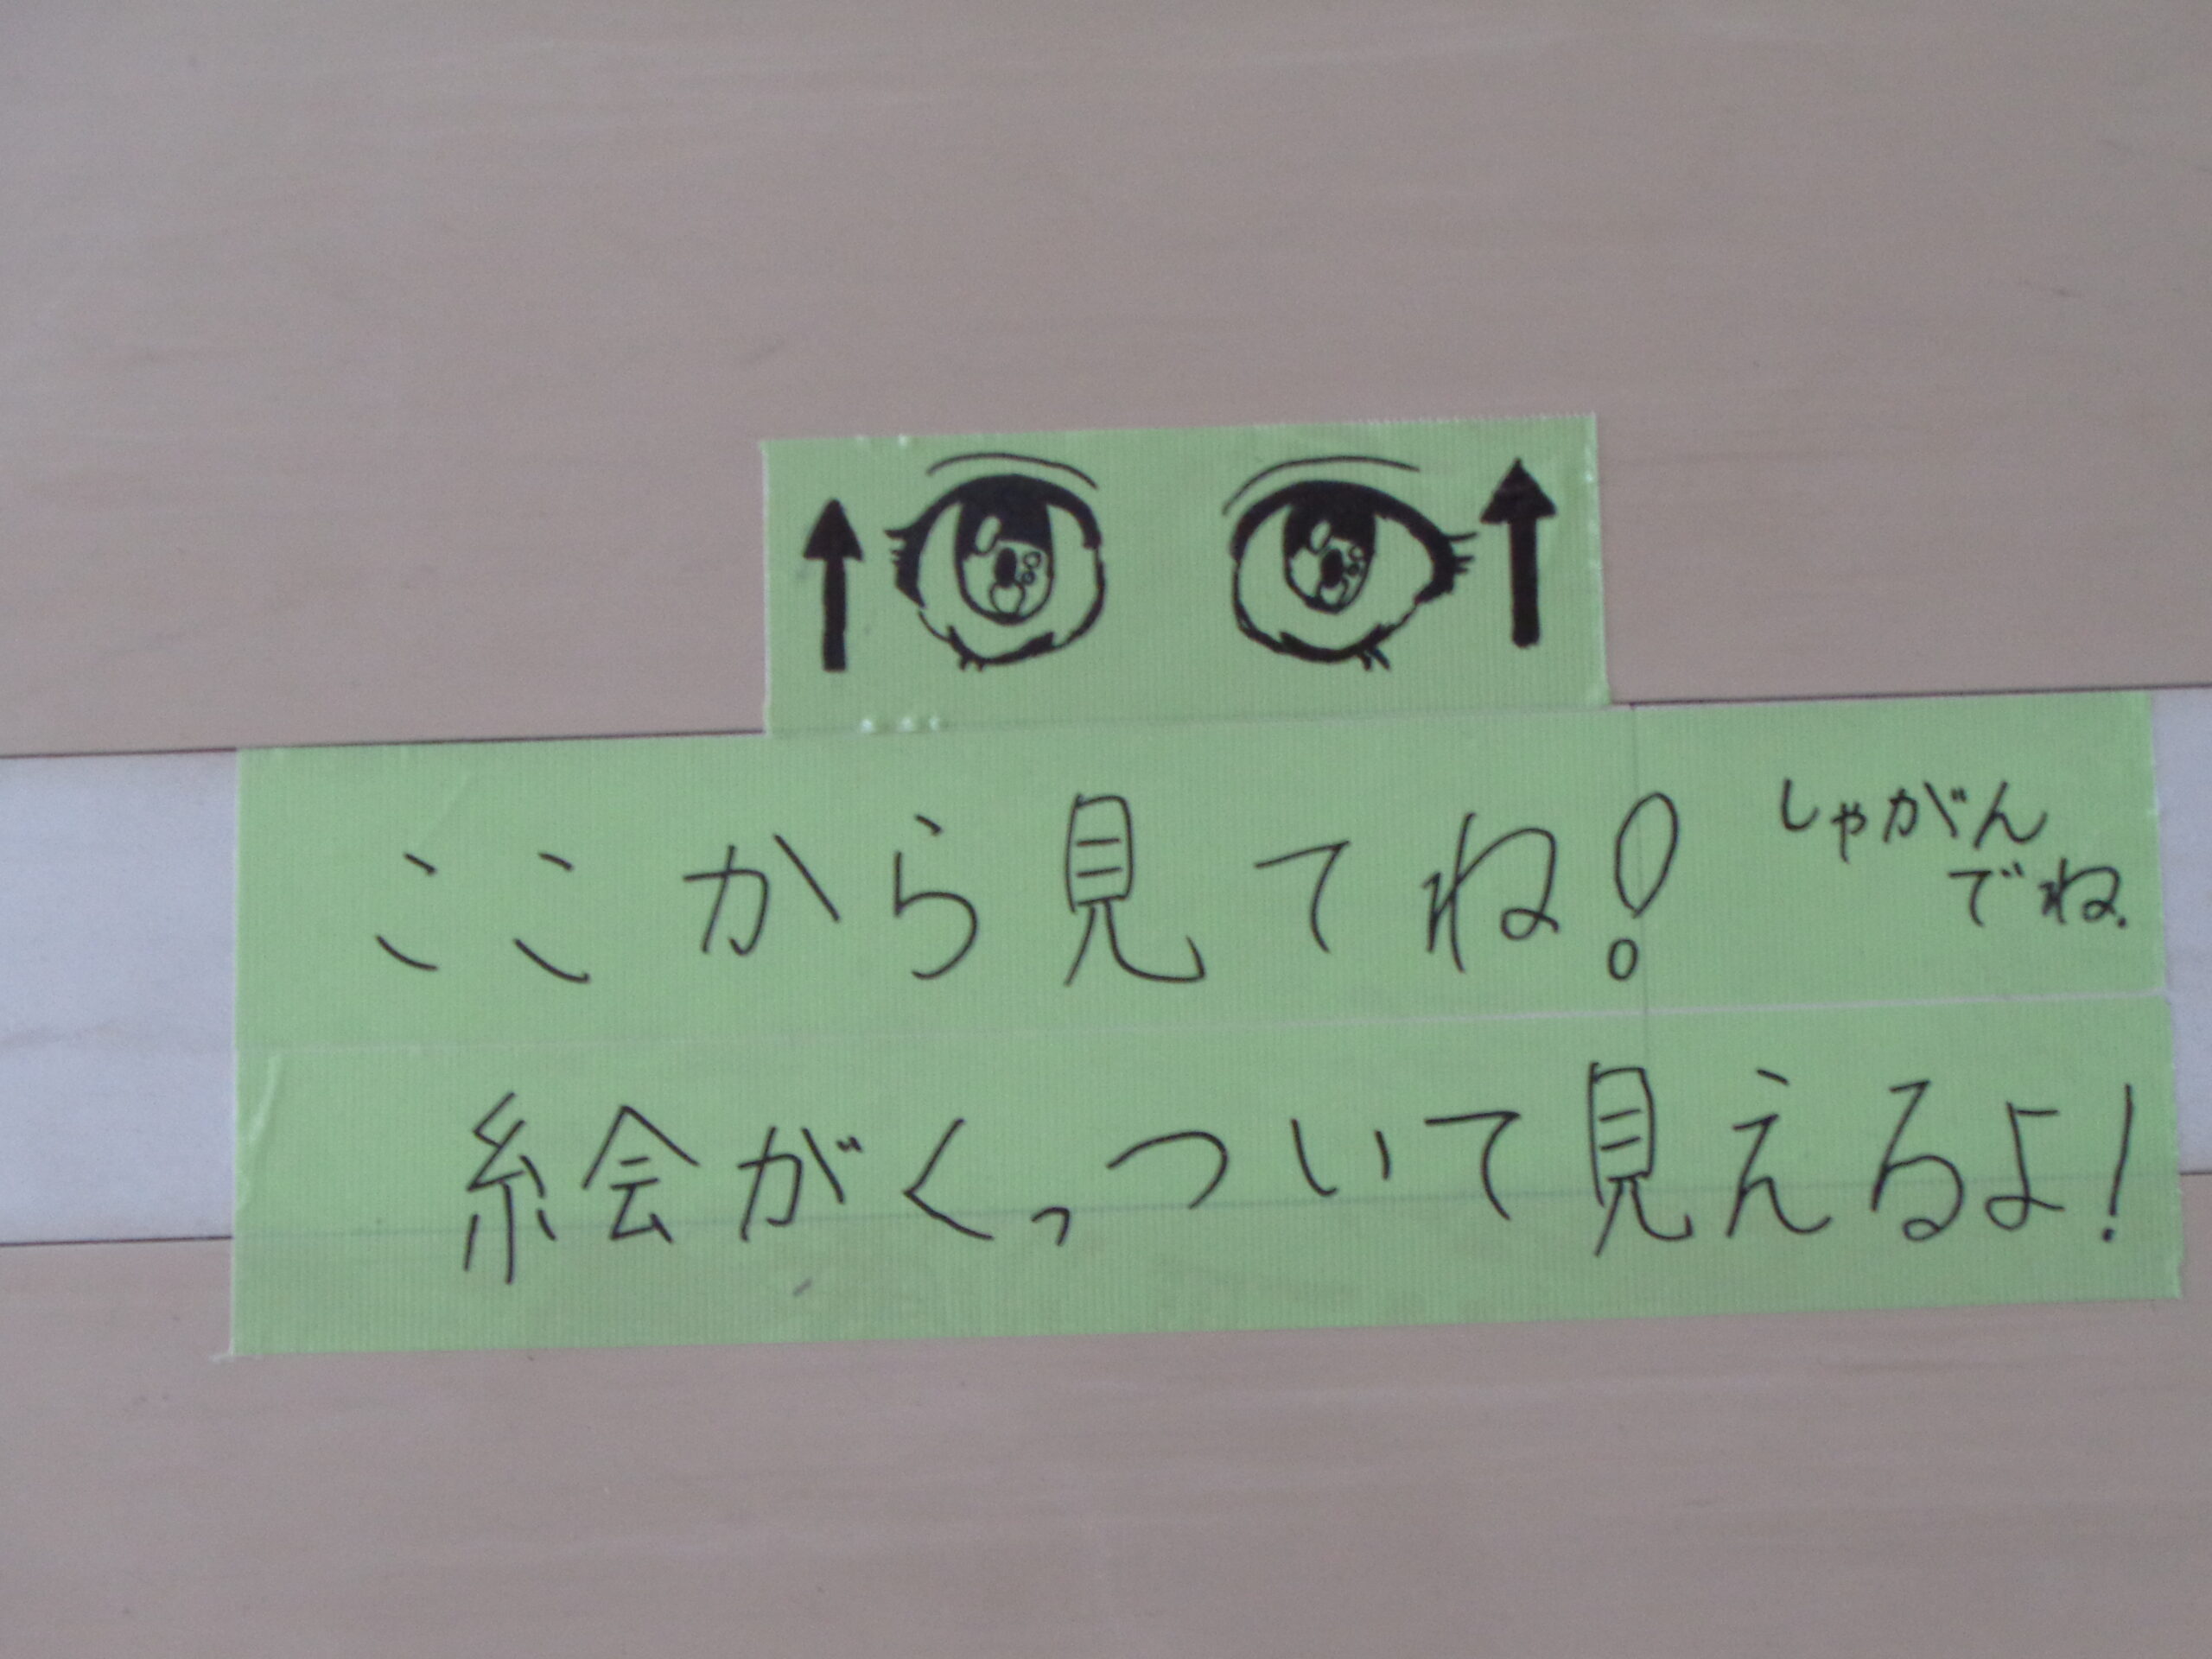 ここから見てね！
しゃがん
でね.
絵がくっついて見えるよ！